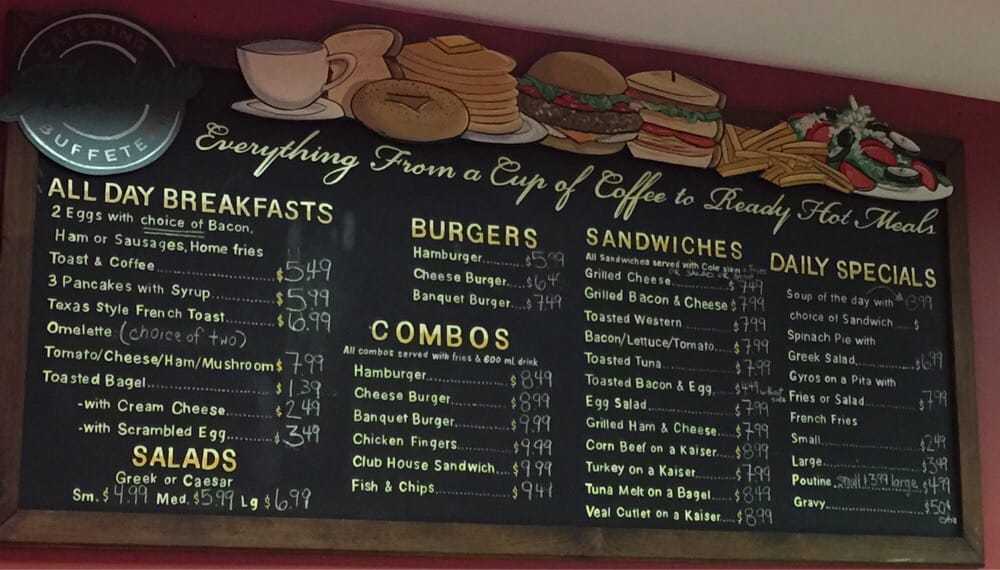 CATERING
BUFFETE
Everything From a Cup of Coffee to Ready Hot Meals
ALL DAY BREAKFASTS
2 Eggs with choice of Bacon,
Ham or Sausages, Home fries
Toast & Coffee.......$5.49
3 Pancakes with Syrup.......$5.99
Texas Style French Toast.......$6.99
Omelette (choice of two)
Tomato/Cheese/Ham/Mushroom $7.99
Toasted Bagel.......$1.39
-with Cream Cheese.......$2.49
-with Scrambled Egg.......$3.49
SALADS
Greek or Caesar
Sm. $4.99 Med. $5.99 Lg $6.99
BURGERS
Hamburger.......$5.99
Cheese Burger.......$6.49
Banquet Burger.......$7.49
COMBOS
All combos served with fries & 600 ml drink
Hamburger.......$8.49
Cheese Burger.......$8.99
Banquet Burger.......$9.99
Chicken Fingers.......$9.99
Club House Sandwich....$9.99
Fish & Chips.......$9.41
SANDWICHES
All Sandwiches served with Cole slaw + Fries
OR SALAD OR Soup
Grilled Cheese.......$7.49
Grilled Bacon & Cheese $7.99
Toasted Western.......$7.99
Bacon/Lettuce/Tomato....$7.99
Toasted Tuna.......$7.99
Toasted Bacon & Egg.......$4.49 without
Egg Salad.......$7.99
Grilled Ham & Cheese....$7.99
Corn Beef on a Kaiser....$8.99
Turkey on a Kaiser.......$7.99
Tuna Melt on a Bagel.....$8.49
Veal Cutlet on a Kaiser....$8.99
DAILY SPECIALS
Soup of the day with 8.99
choice of Sandwich.....$
Spinach Pie with
Greek Salad.......$6.99
Gyros on a Pita with
Fries or Salad.......$7.99
French Fries
Small.......$2.49
Large.......$3.49
Poutine small $3.99 large $4.99
Gravy.......$.50¢
extra